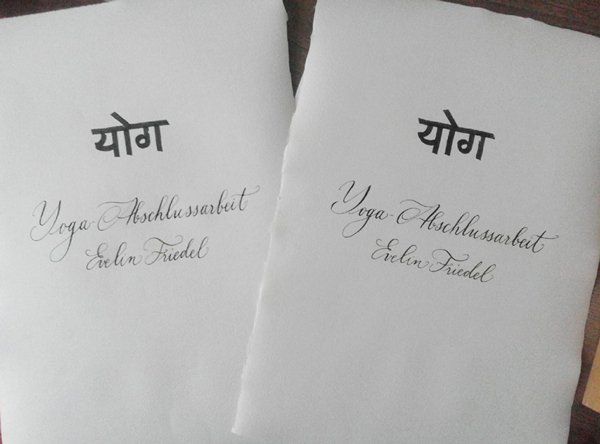 योग
Yoga-Abschlussarbeit
Evelin Friedel
योग
Yoga-Abschlussarbeit
Evelin Friedel